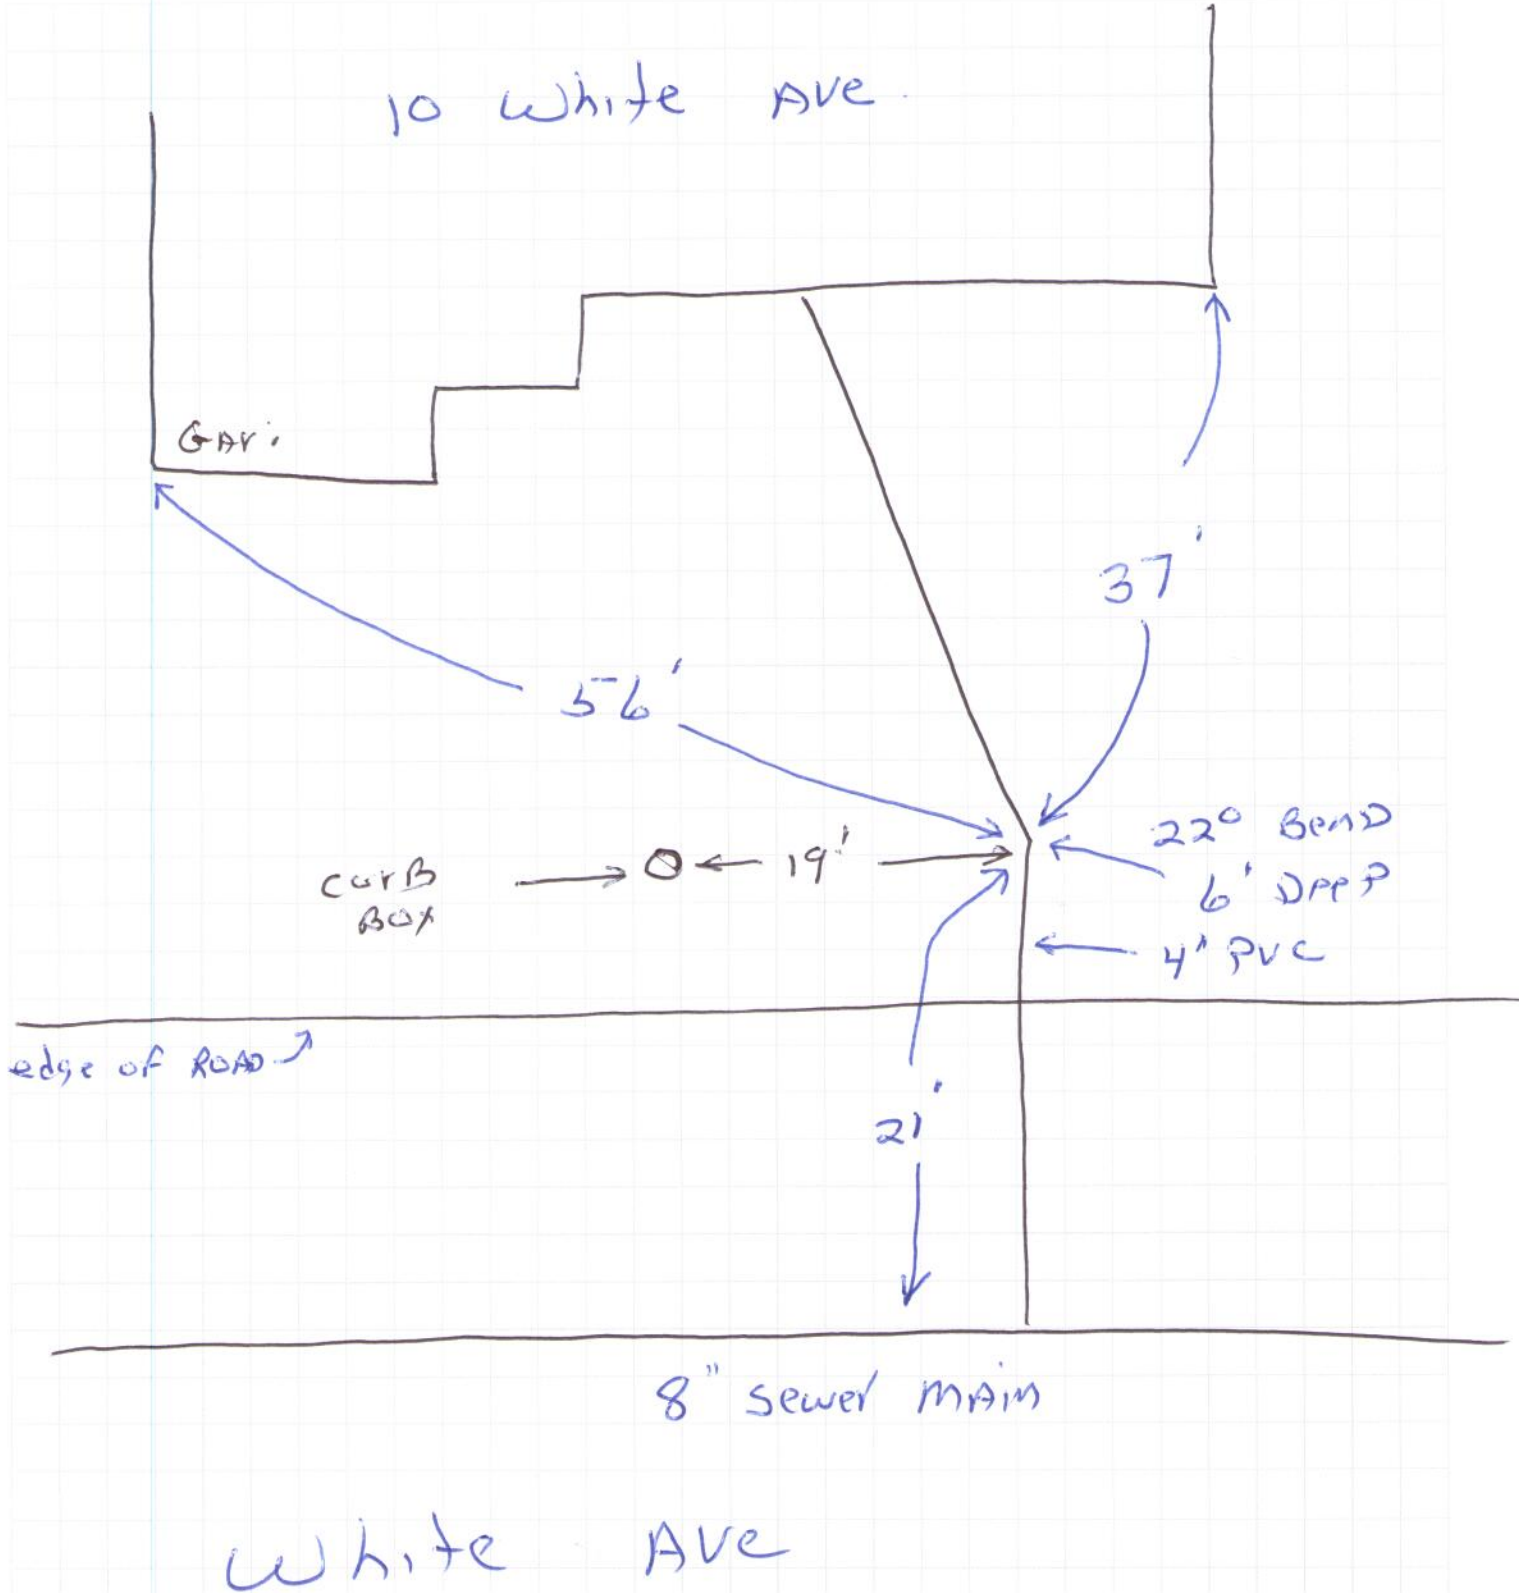 10 White Ave.
Gar.
37'
56'
22° Bend
6' Deep
curB
Box
19'
4" PVC
edge of ROAD
21'
8" sewer main
White Ave